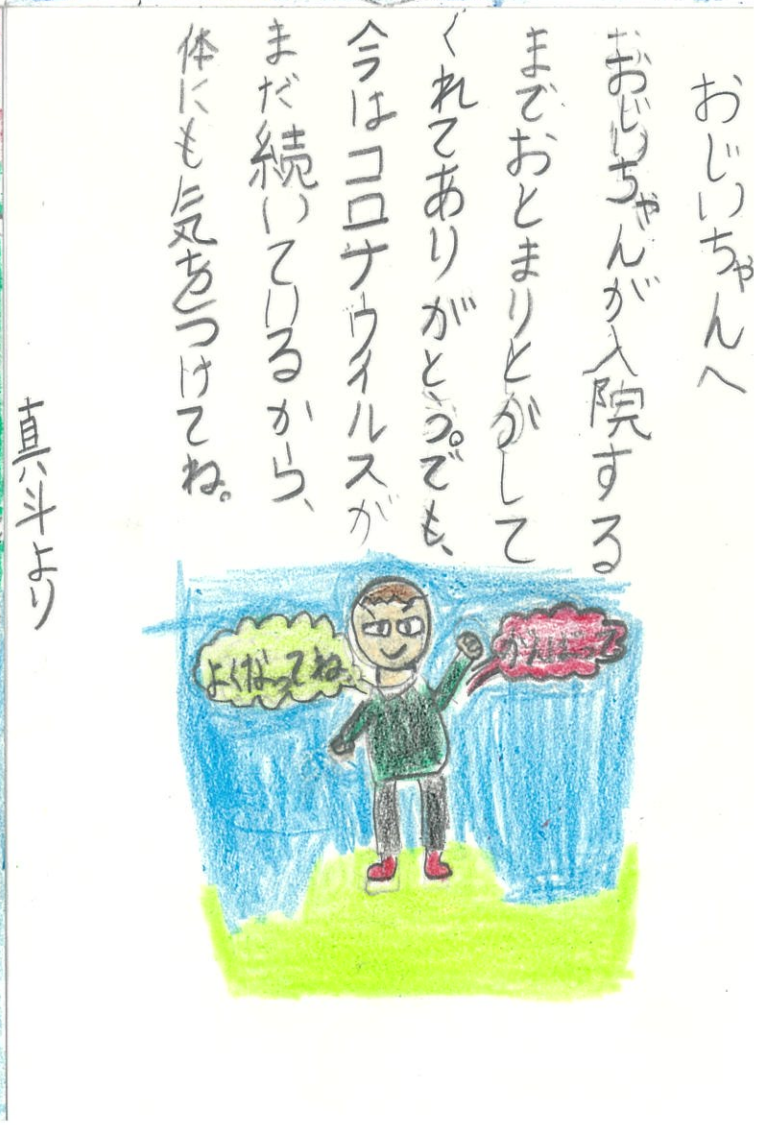 おじいちゃんへ
おじいちゃんが入院する
までおとまりとがして
くれてありがとう。でも、
今はコロナウイルスが
まだ続いているから、
体にも気をつけてね。
真斗より
がんばって
よくなってね。